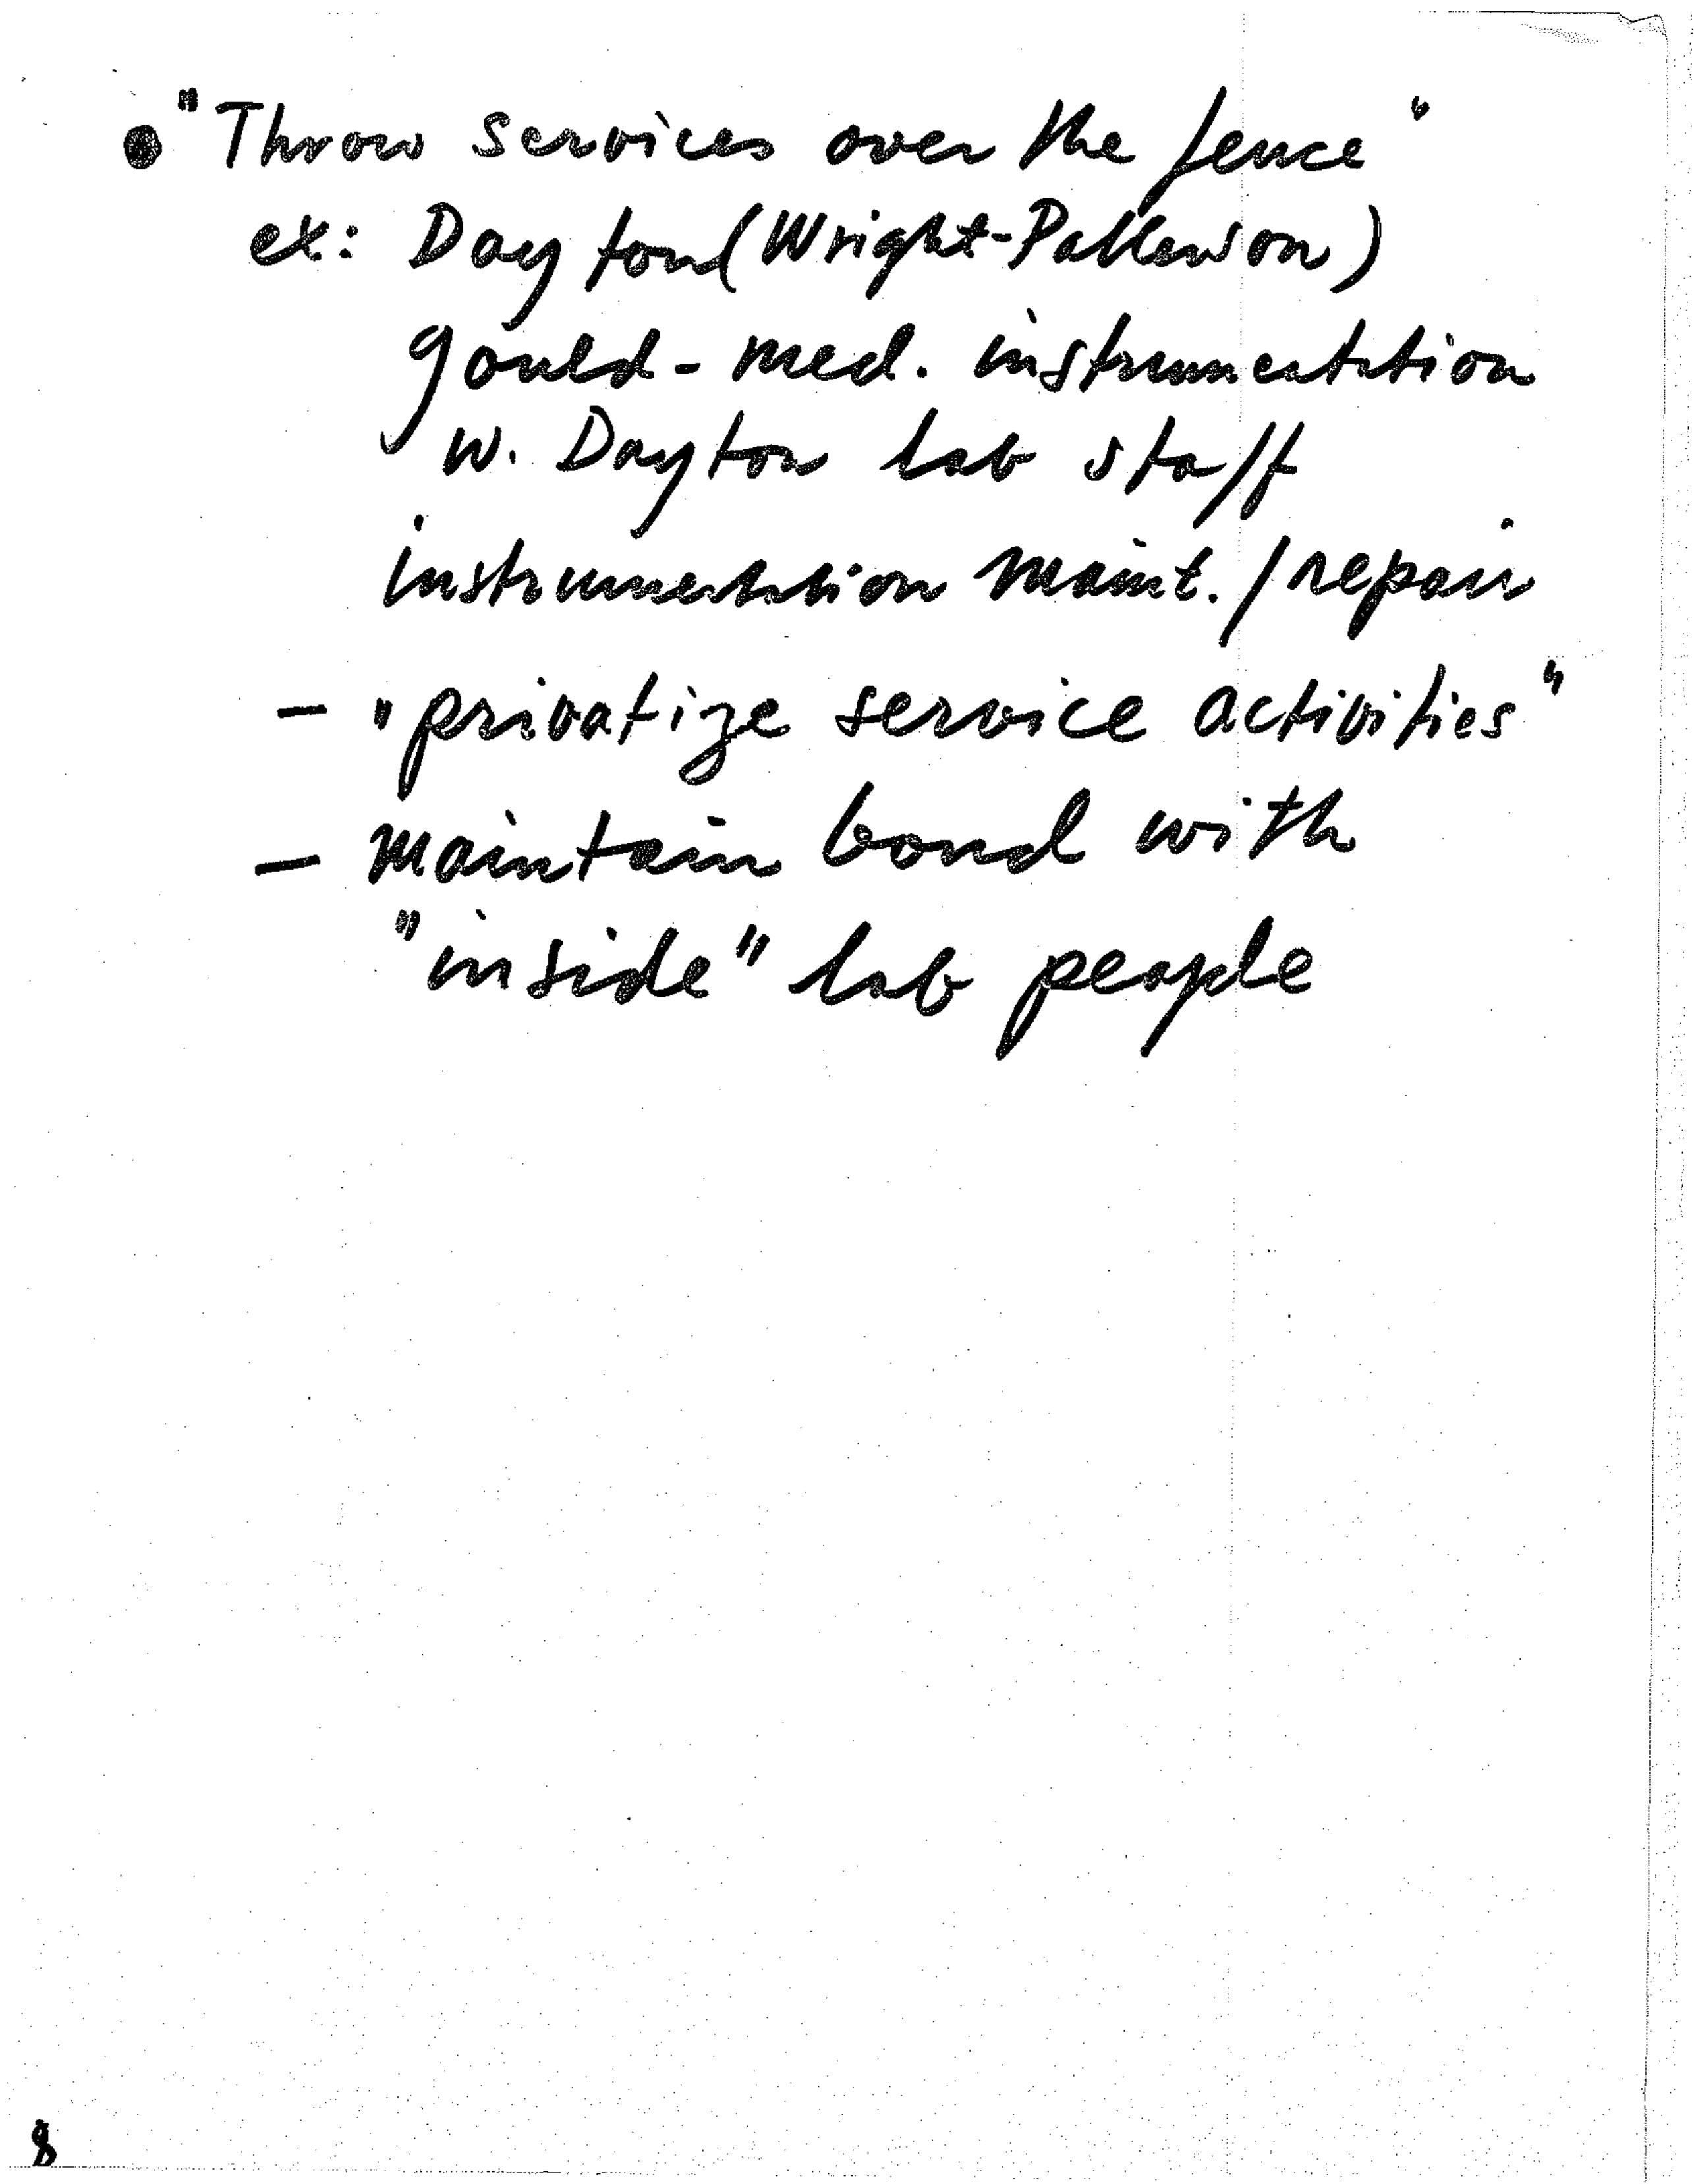 ● "Throw services over the fence"
ex: Dayton (Wright-Patterson)
Gould - med. instrumentation
w. Dayton lab staff
instrumentation maint. / repair
- "privatize service activities"
- maintain bond with
"inside" lab people
8